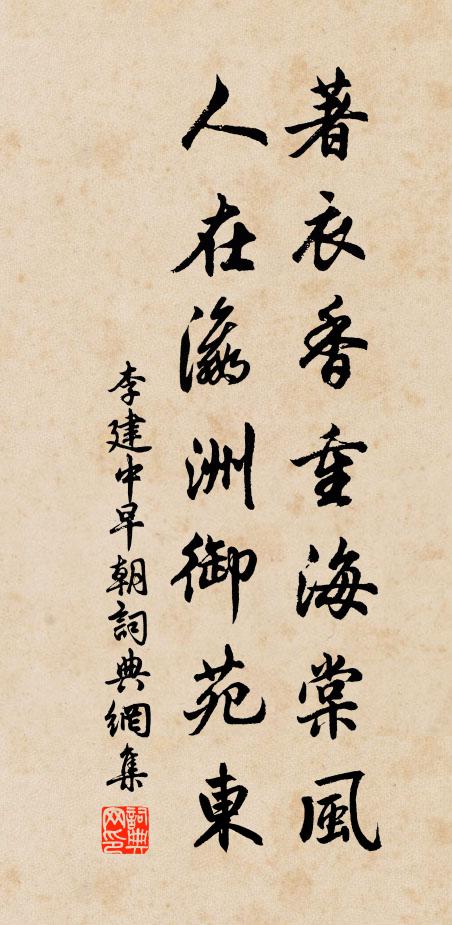 著衣香重海棠風
人在瀛洲御苑東
李建中早朝詞典網集
詞典网印